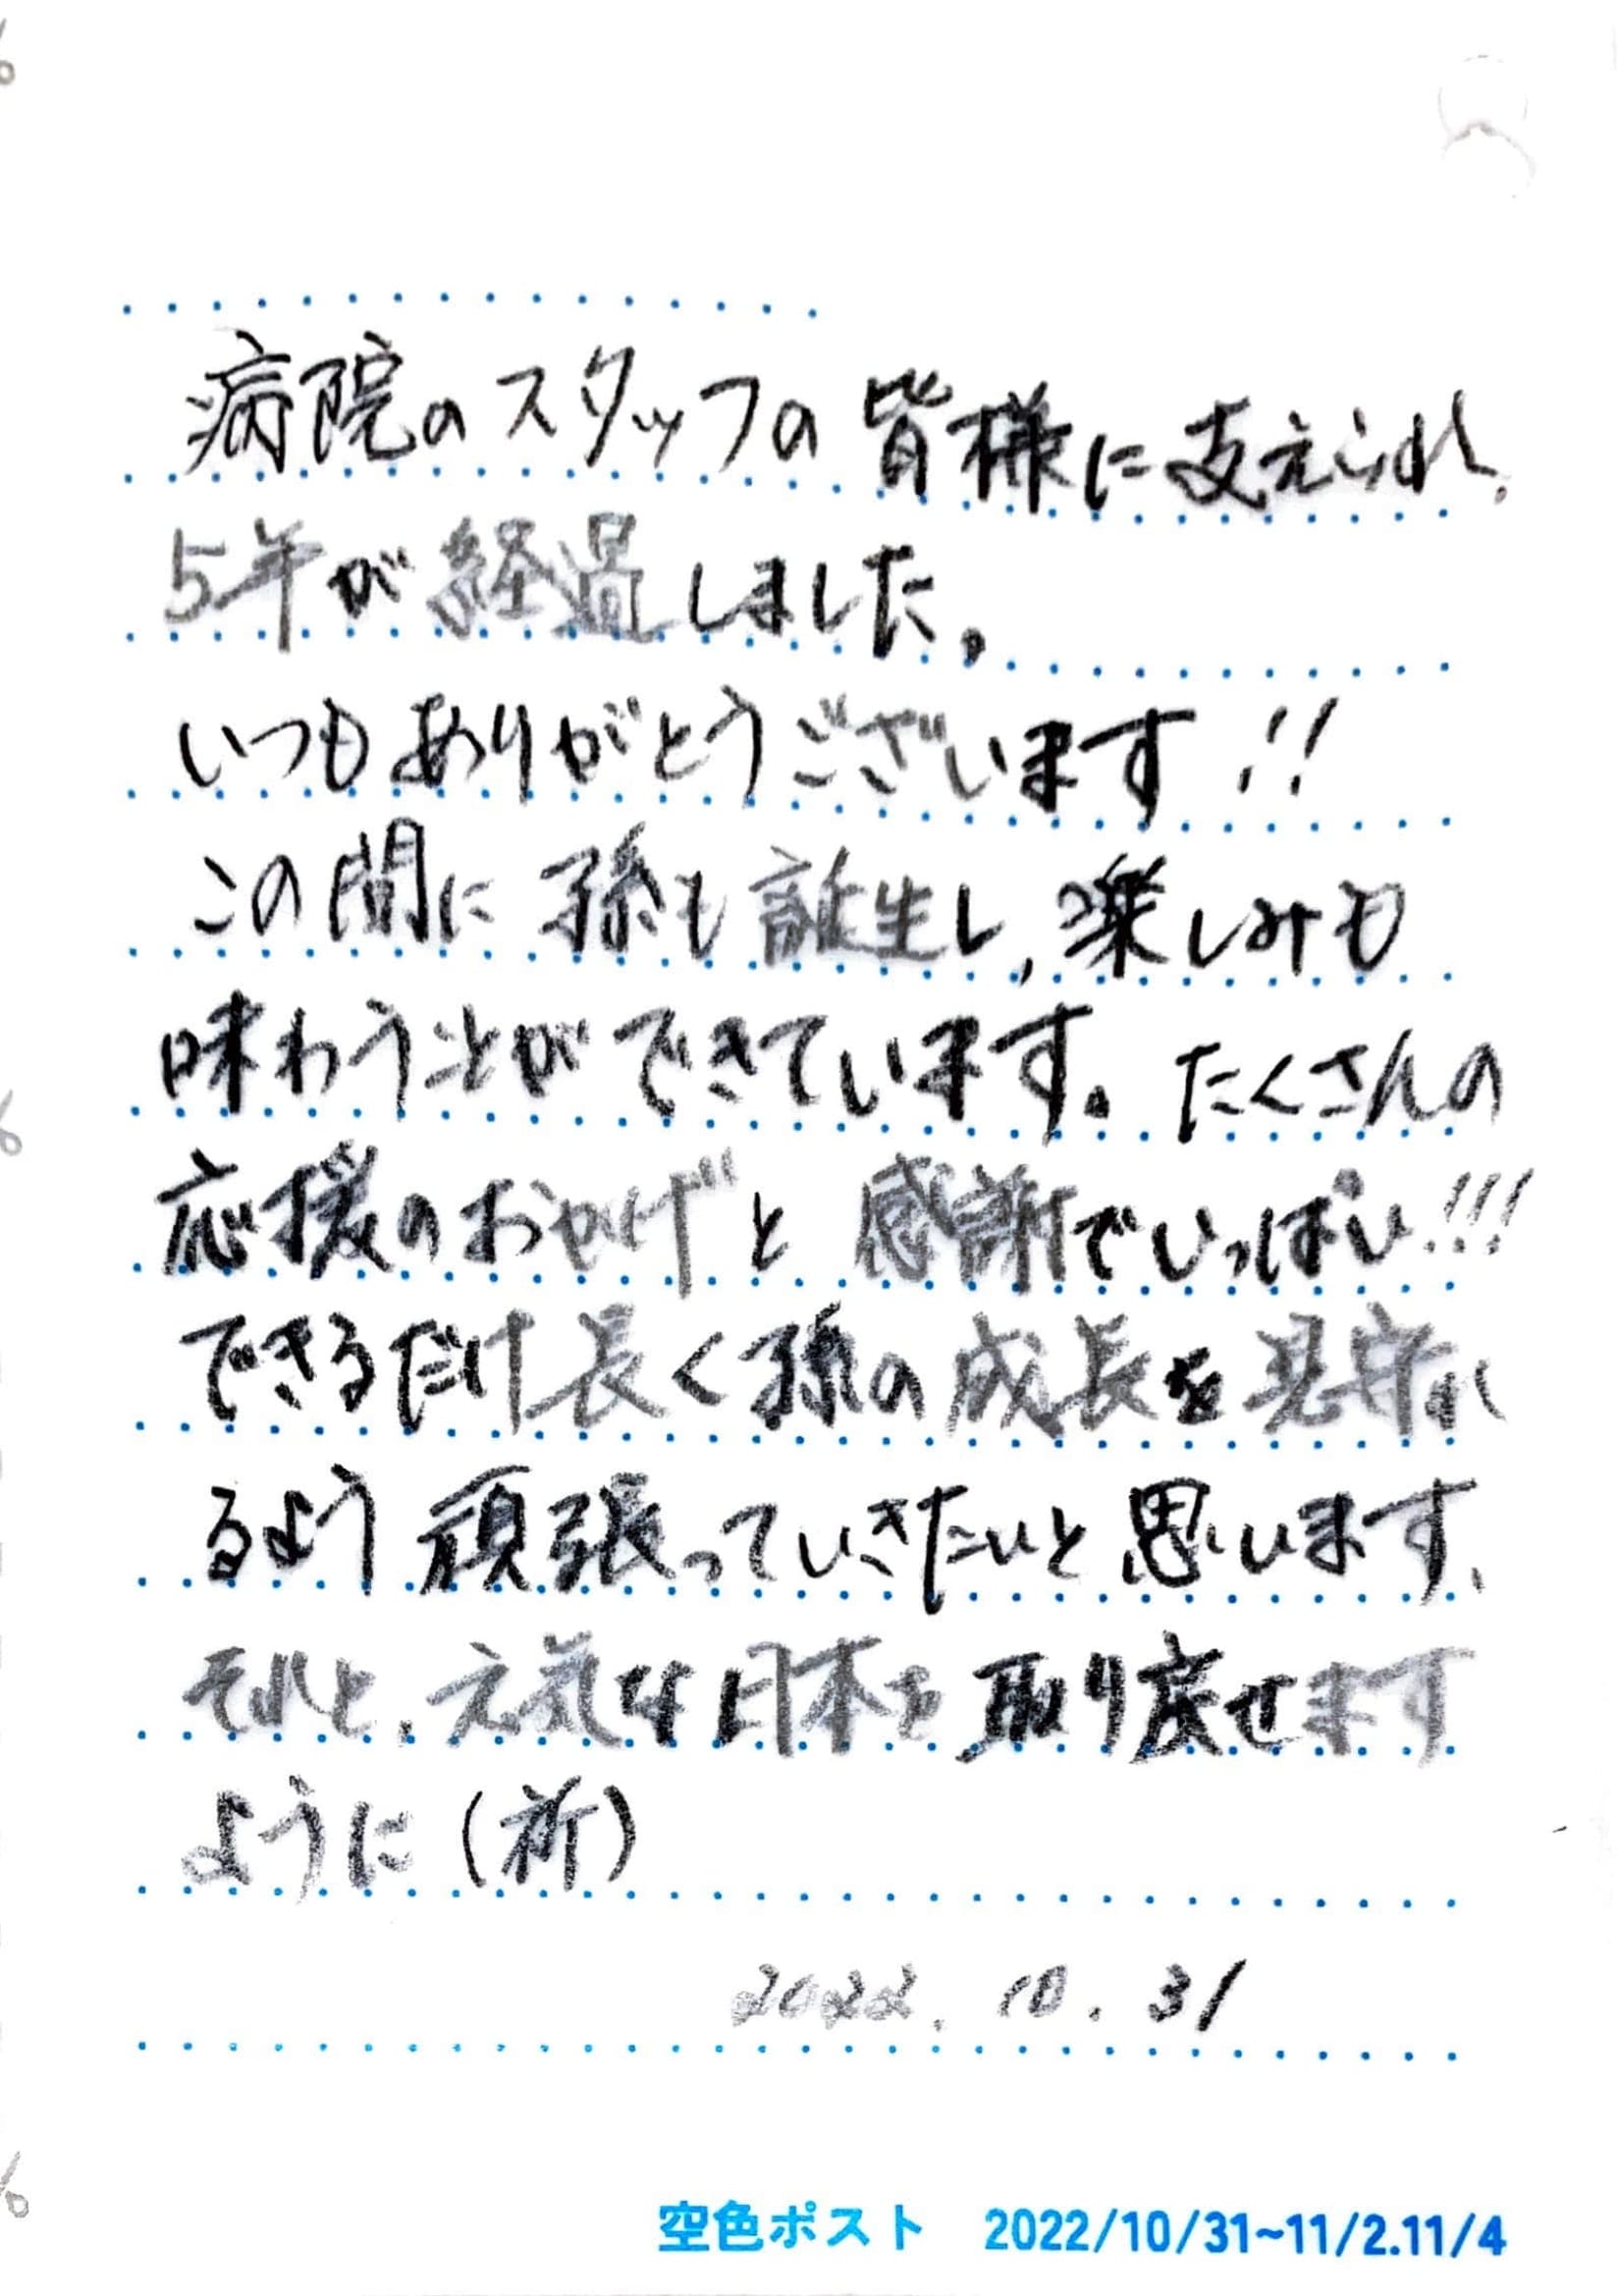 病院のスタッフの皆様に支えられ、
5年が経過しました。
いつもありがとうございます!!
この間に孫も誕生し、楽しみも
味わうことができています。たくさんの
応援のおかげと感謝でいっぱい!!!
できるだけ長く孫の成長を見守れ
るよう頑張っていきたいと思います、
それと、元気な日本を取り戻せます
ように(祈)
2022. 10. 31
空色ポスト 2022/10/31~11/2.11/4